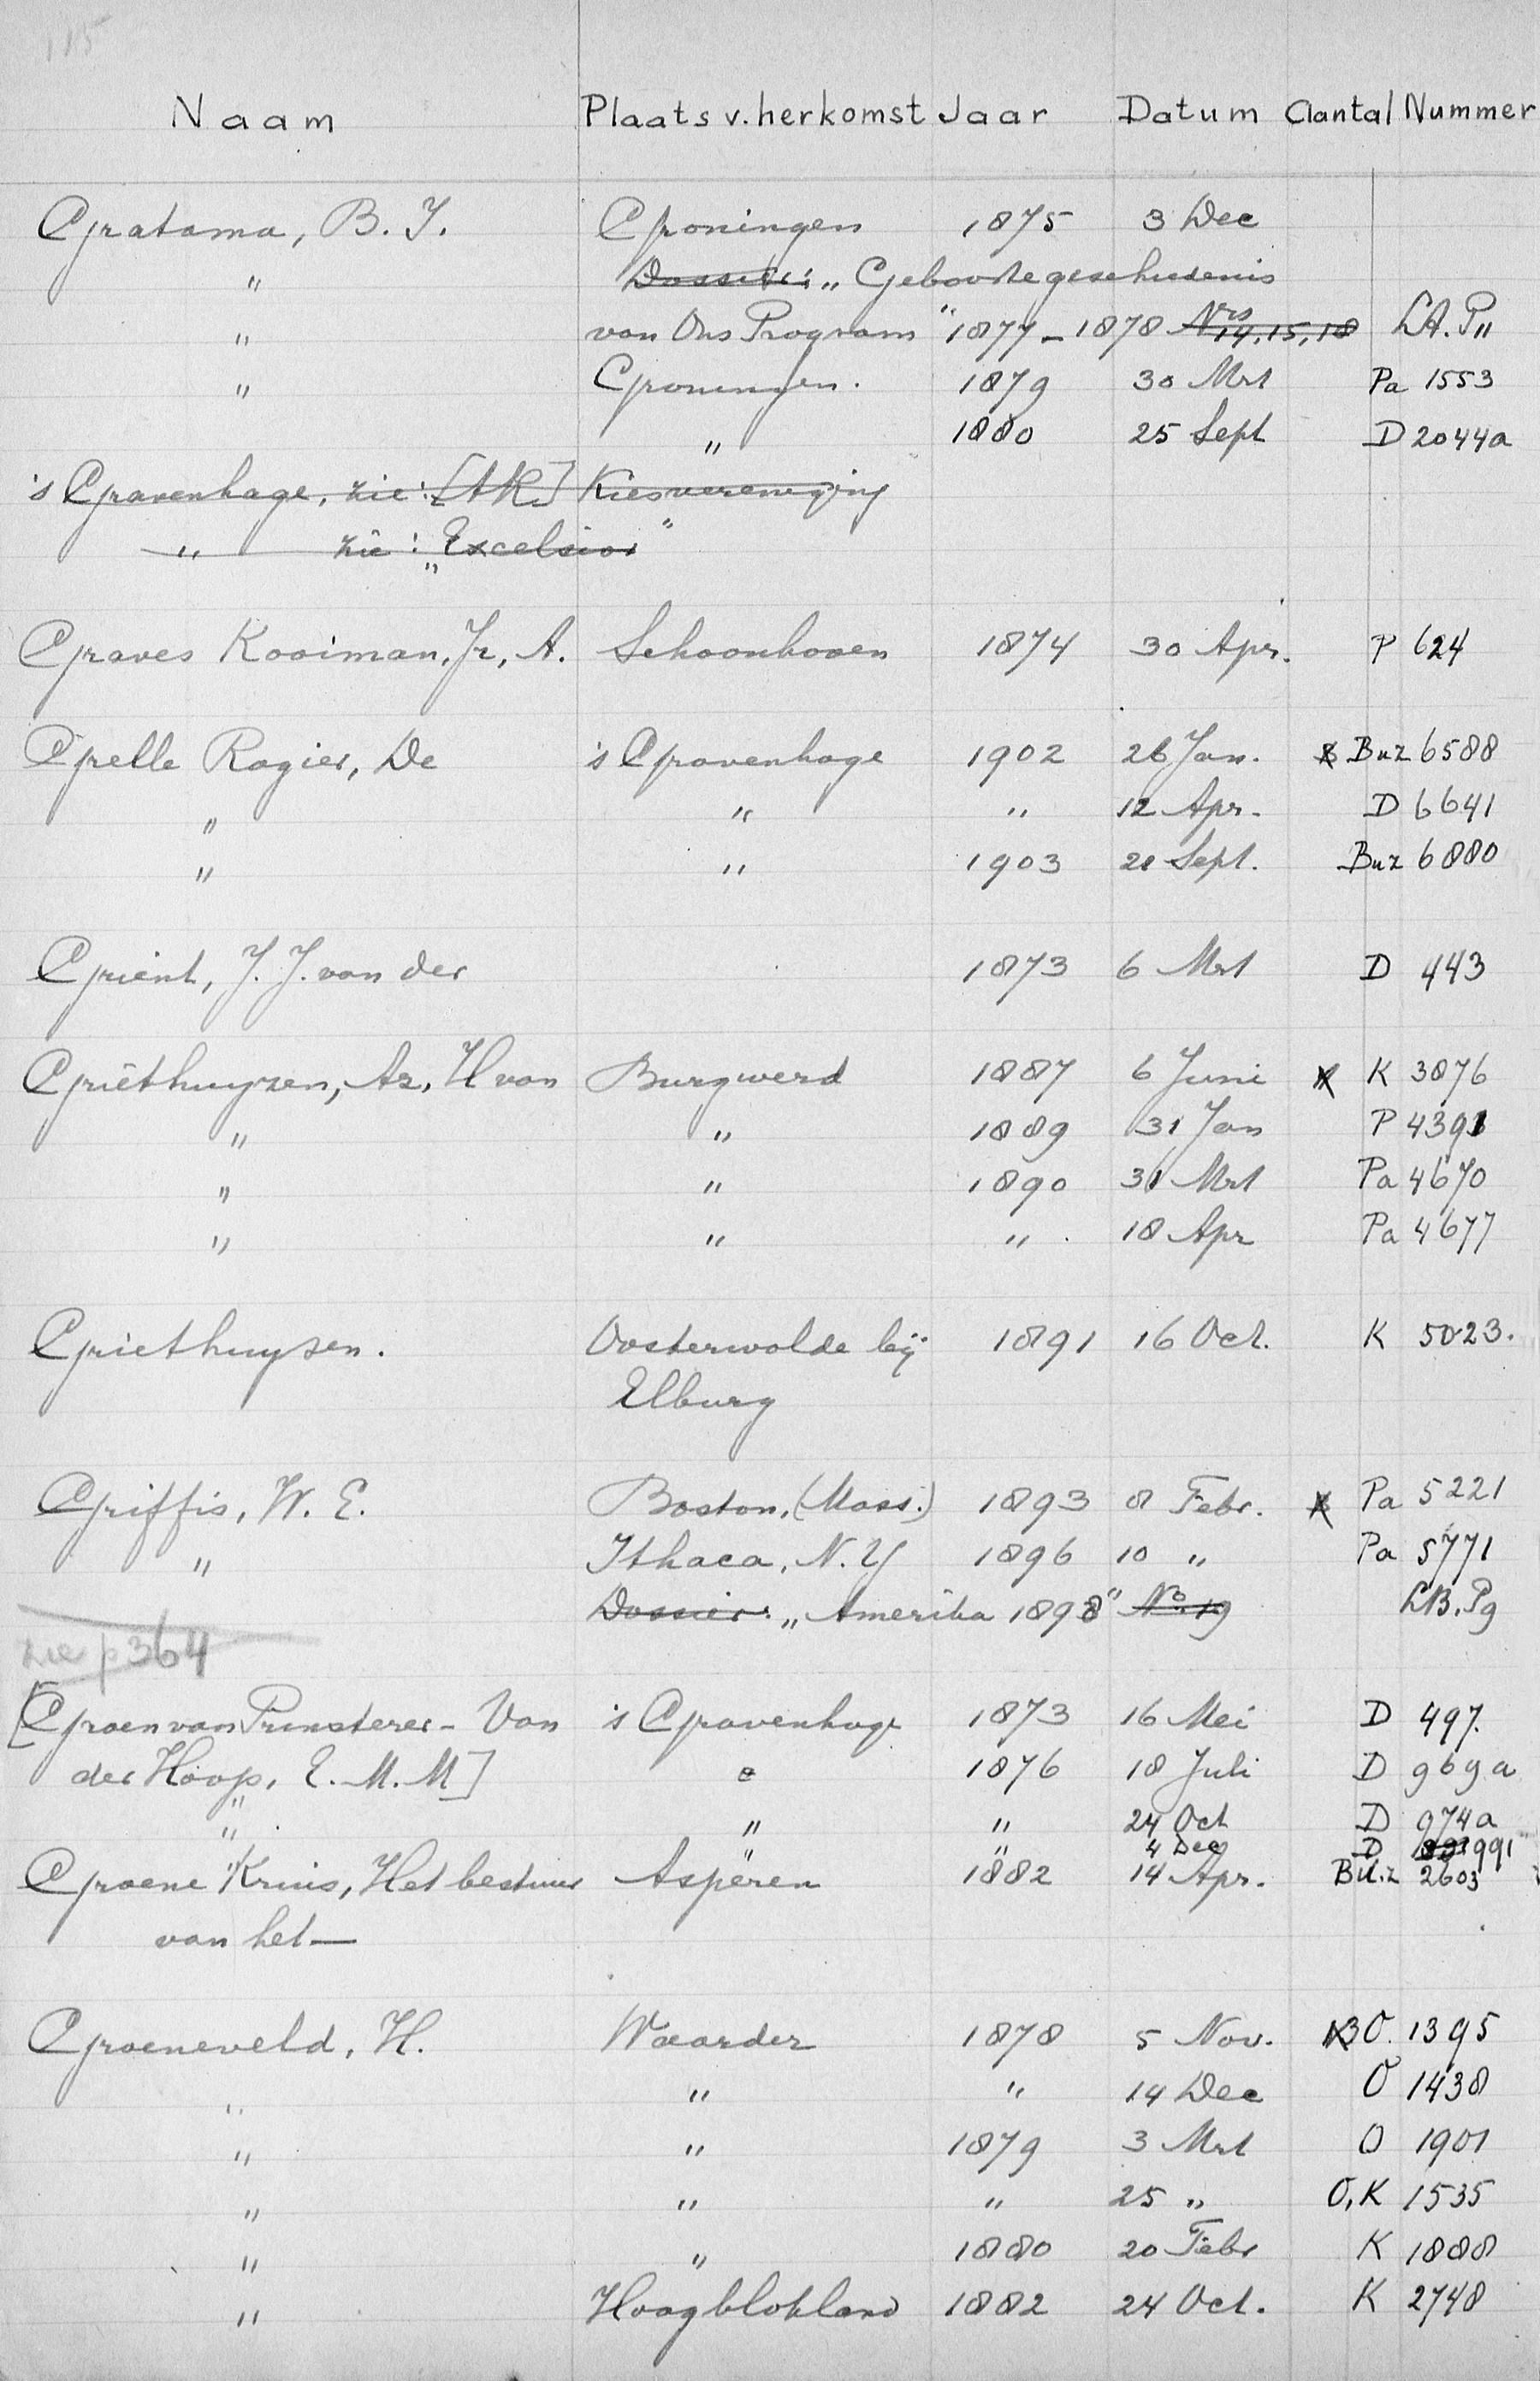 115
Naam Plaats v. herkomst Jaar Datum Aantal Nummer
Gratama, B. J. Groningen 1875 3 Dec
" Dossier: „Geboortegeschiedenis
" van Ons Program" 1877-1878 Nrs 14, 15, 18 LA. P11
" Groningen. 1879 30 Mrt Pa 1553
" 1880 25 Sept D 2044a
's Gravenhage, zie: [AR] Kiesvereeniging
" zie: „Excelsior"
Graves Kooiman, Jr, A. Schoonhoven 1874 30 Apr. P 624
Grelle Rogier, De 's Gravenhage 1902 26 Jan. Buz 6588
" " " 12 Apr. D 6641
" " 1903 21 Sept. Buz 6880
Grient, J. J. van der 1873 6 Mrt D 443
Griethuyzen, Az, H van Burgwerd 1887 6 Juni K 3876
" " 1889 31 Jan P 4391
" " 1890 31 Mrt Pa 4670
" " " 18 Apr Pa 4677
Griethuysen. Oosterwolde bij 1891 16 Oct. K 5023.
Elburg
Griffis, W. E. Boston, (Mass.) 1893 8 Febr. Pa 5221
" Ithaca, N. Y 1896 10 " Pa 5771
Dossier: „Amerika 1898" No. 19 LB. P9
zie p 364
[Groen van Prinsterer - Van 's Gravenhage 1873 16 Mei D 497.
der Hoop, E. M. M] 1876 18 Juli D 969a
" " " 24 Oct D 974a
" " " 4 Dec D 991
Groene Kruis, Het bestuur Asperen 1882 14 Apr. Bu.z 2603
van het —
Groeneveld, H. Waarder 1878 5 Nov. O. 1395
" " " 14 Dec O 1438
" " 1879 3 Mrt O 1901
" " " 25 " O, K 1535
" " 1880 20 Febr K 1888
" Hoogblokland 1882 24 Oct. K 2748